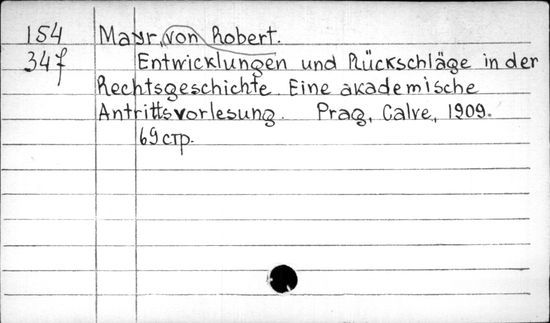 154 Mayr, von Robert.
347 Entwicklungen und Rückschläge in der
Rechtsgeschichte. Eine akademische
Antrittsvorlesung. Prag, Calve, 1909.
69 стр.